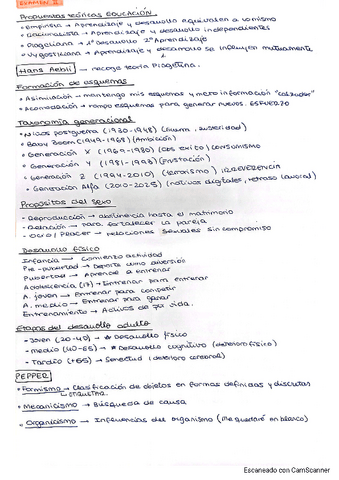 EXAMEN II
Problemas teóricas EDUCACIÓN
• Empirista → Aprendizaje y desarrollo equivalen a lo mismo
• Racionalista → Aprendizaje y desarrollo independientes
• Piagetiana → 1º Desarrollo 2º Aprendizaje
• Vygostkiana → Aprendizaje y desarrollo se influyen mutuamente
Hans Aebli → recoge teoría Piagetina.
Formación de esquemas
• Asimilación → mantengo mis esquemas y meto información
• Acomodación → rompo esquemas para generar nuevos. ESFUERZO
Taxonomía generacional
• Niños postguerra (1930-1948) (Guerra, austeridad)
• Baby Boom (1949-1968) (Ambición)
• Generación X (1969-1980) (Obs éxito) CONSUMISMO
• Generación Y (1981-1993) (Frustación)
• Generación Z (1994-2010) (terrorismo) IRREVERENCIA
• Generación Alfa (2010-2025) (nativos digitales, retraso laboral)
Propósitos del sexo
- Reproducción → abstinencia hasta el matrimonio
- Relación → para fortalecer la pareja
- Ocio / Placer → relaciones sexuales sin compromiso
Desarrollo físico
Infancia → comienzo actividad
Pre-pubertad → Deporte como diversión
Pubertad → Aprende a entrenar
Adolescencia (17) → Entrenar para entrenar
A. joven → Entrenar para competir
A. medio → Entrenar para ganar
Entrenamiento → Activos de por vida.
Etapas del desarrollo adulto
• Joven (20-40) → * Desarrollo físico
• medio (40-65) → * Desarrollo cognitivo (deterioro físico)
• Tardío (+65) → Senectud (deterioro cerebral)
PEPPER
• Formismo → Clasificación de objetos en formas definidas y discretas
• Mecanicismo → Búsqueda de causa
• Organicismo → Influencias del organismo (me quedaré en blanco)
Escaneado con CamScanner